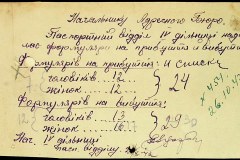 Начальнику Адресного Бюро.
Паспортний відділ IV дільниці
формулярів на прибувших и вибувш
Формулярів на прибувших: и списки
чоловіків... 12...
жінок..... 12...
} 24
Формулярів на вибувших:
чоловіків..... 13
жінок.... 16
} 29
Нач. IV дільниці
пасп. відділу